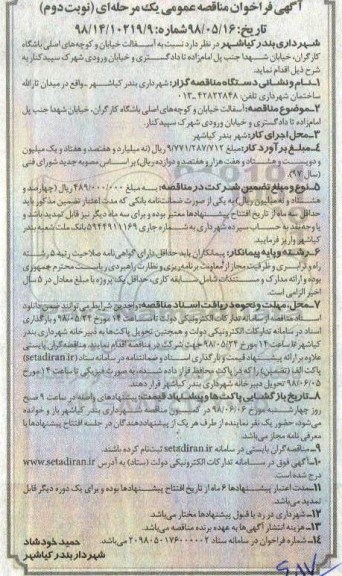 آگهی فراخوان مناقصه عمومی یک مرحله‌ای (نوبت دوم)
تاریخ: ۹۸/۰۵/۱۶ شماره: ۹۸/۱۴/۱۰۲۱۹/۹
شهرداری بندر کیاشهر در نظر دارد نسبت به آسفالت خیابان و کوچه‌های اصلی باشگاه
کارگران، خیابان شهدا جنب پل امام‌زاده تا دادگستری و خیابان ورودی شهرک سپیدکنار به
شرح ذیل اقدام نماید.
۱ـ نام و نشانی دستگاه مناقصه‌گزار: شهرداری بندر کیاشهر ـ واقع در میدان ثارالله
ساختمان شهرداری تلفن: ۴۲۸۲۲۸۴۸ـ۰۱۳
۲ـ موضوع مناقصه: آسفالت خیابان و کوچه‌های اصلی باشگاه کارگران، خیابان شهدا جنب پل
امام‌زاده تا دادگستری و خیابان ورودی شهرک سپیدکنار.
۳ـ محل اجرای کار: شهر بندر کیاشهر
۴ـ مبلغ برآورد کار: مبلغ ۹/۷۷۱/۲۸۷/۷۱۲ ریال (نه میلیارد و هفتصد و هفتاد و یک میلیون
و دویست و هشتاد و هفت هزار و هفتصد و دوازده ریال) بر اساس مصوبه جدید شورای فنی
(سال ۹۷).
۵ـ نوع و مبلغ تضمین شرکت در مناقصه: به مبلغ ۴۸۹/۰۰۰/۰۰۰ ریال (چهارصد و
هشتاد و نه میلیون ریال) به یکی از صورت ضمانت‌نامه بانکی که مدت اعتبار تضمین مذکور باید
حداقل سه ماه از تاریخ افتتاح پیشنهادها معتبر بوده و برای سه ماه دیگر نیز قابل تمدید باشد و
یا وجه نقد به حساب سپرده شهرداری به شماره جاری ۵۹۴۴۹۱۱۱۶۹ بانک ملت شعبه بندر
کیاشهر واریز فرمایید.
۶ـ رشته و پایه پیمانکار: پیمانکاران باید حداقل دارای گواهی‌نامه صلاحیت رتبه ۵ رشته
راه و ترابری و ظرفیت مجاز از معاونت برنامه‌ریزی و نظارت راهبردی ریاست محترم جمهوری
بوده و ارائه مدارک و مستندات شامل سابقه کاری، حداقل یک پروژه با مبلغ معادل در ۵ سال
اخیر الزامی است.
۷ـ محل، مهلت و نحوه دریافت اسناد مناقصه: واجدین شرایط می‌توانند ضمن دانلود
اسناد مناقصه از سامانه تدارکات الکترونیکی دولت تا ساعت ۱۴ مورخ ۹۸/۰۵/۲۲ و بارگذاری
اسناد در سامانه تدارکات الکترونیکی دولت و همچنین تحویل پاکت‌ها به دبیرخانه شهرداری بندر
علاوه بر ارائه پیشنهاد قیمت و بارگذاری اسناد و ضمانتنامه در سامانه ستاد (setadiran.ir)
پاکت الف (تضمین) را که در پاکت محفوظ قرار داده شده، به صورت فیزیکی تا ساعت ۱۴ مورخ
۹۸/۰۶/۰۵ تحویل دبیرخانه شهرداری بندر کیاشهر قرار دهند.
۸ـ تاریخ بازگشایی پاکت‌ها و پیشنهاد قیمت: پیشنهادهای واصله در ساعت ۹ صبح
روز چهارشنبه مورخ ۹۸/۰۶/۰۶ در کمیسیون مناقصه شهرداری بندر کیاشهر باز و خوانده
می‌شود، حضور یک نفر نماینده از طرف هر یک از پیشنهاددهندگان در جلسه افتتاح پیشنهادها با
معرفی نامه مجاز می‌باشد.
۹ـ مناقصه‌گران بایستی در سامانه setadiran.ir ثبت‌نام کرده باشند.
۱۰ـ آگهی فوق در سامانه تدارکات الکترونیکی دولت (ستاد) به آدرس www.setadiran.ir
درج شده است.
۱۱ـ مدت اعتبار پیشنهادها ۶ ماه از تاریخ افتتاح پیشنهادها بوده و برای یک دوره دیگر قابل
تمدید می‌باشد.
۱۲ـ شهرداری در رد یا قبول پیشنهادها مختار می‌باشد.
۱۳ـ هزینه انتشار آگهی‌ها به عهده برنده مناقصه می‌باشد.
۱۴ـ شماره فراخوان در سامانه ستاد ۲۰۹۸۰۵۰۱۷۶۰۰۰۰۰۲ می‌باشد.
حمید خودشاد
شهردار بندر کیاشهر